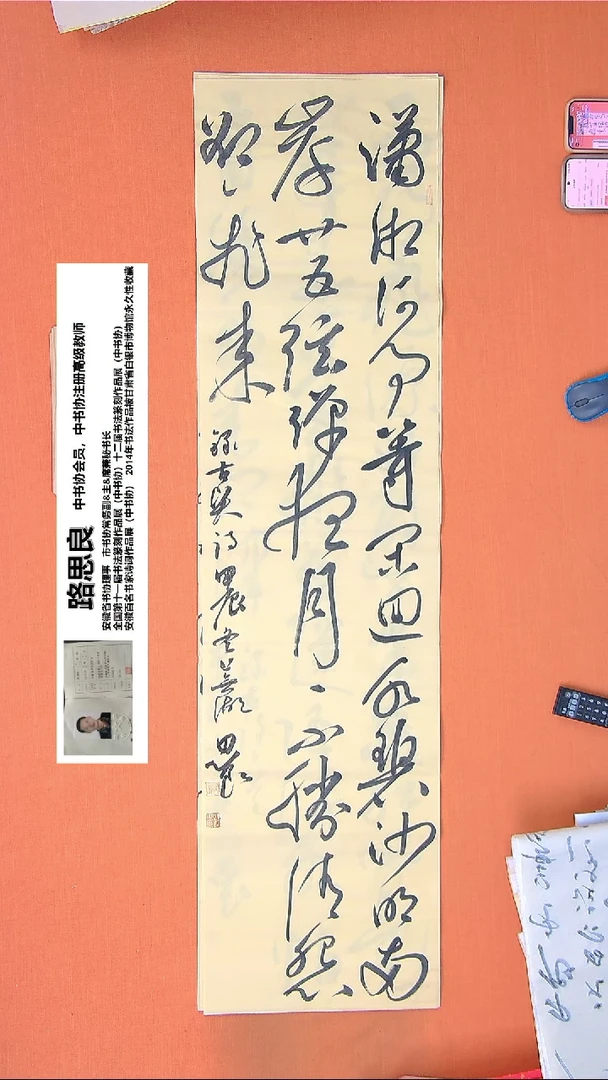 瀟湘何事等閑迴水碧沙明兩
岸廿五弦彈夜月不勝清怨
卻飛來
錄古賢詩
路思良 中书协会员，中书协注册高级教师
安徽省书协理事 市书协常务副&主&席兼秘书长
全国第十一届书法篆刻作品展（中书协）十二届书法篆刻作品展（中书协）
安徽百名书家诗词作品展（中书协） 2014年书法作品被甘肃省白银市博物馆永久性收藏